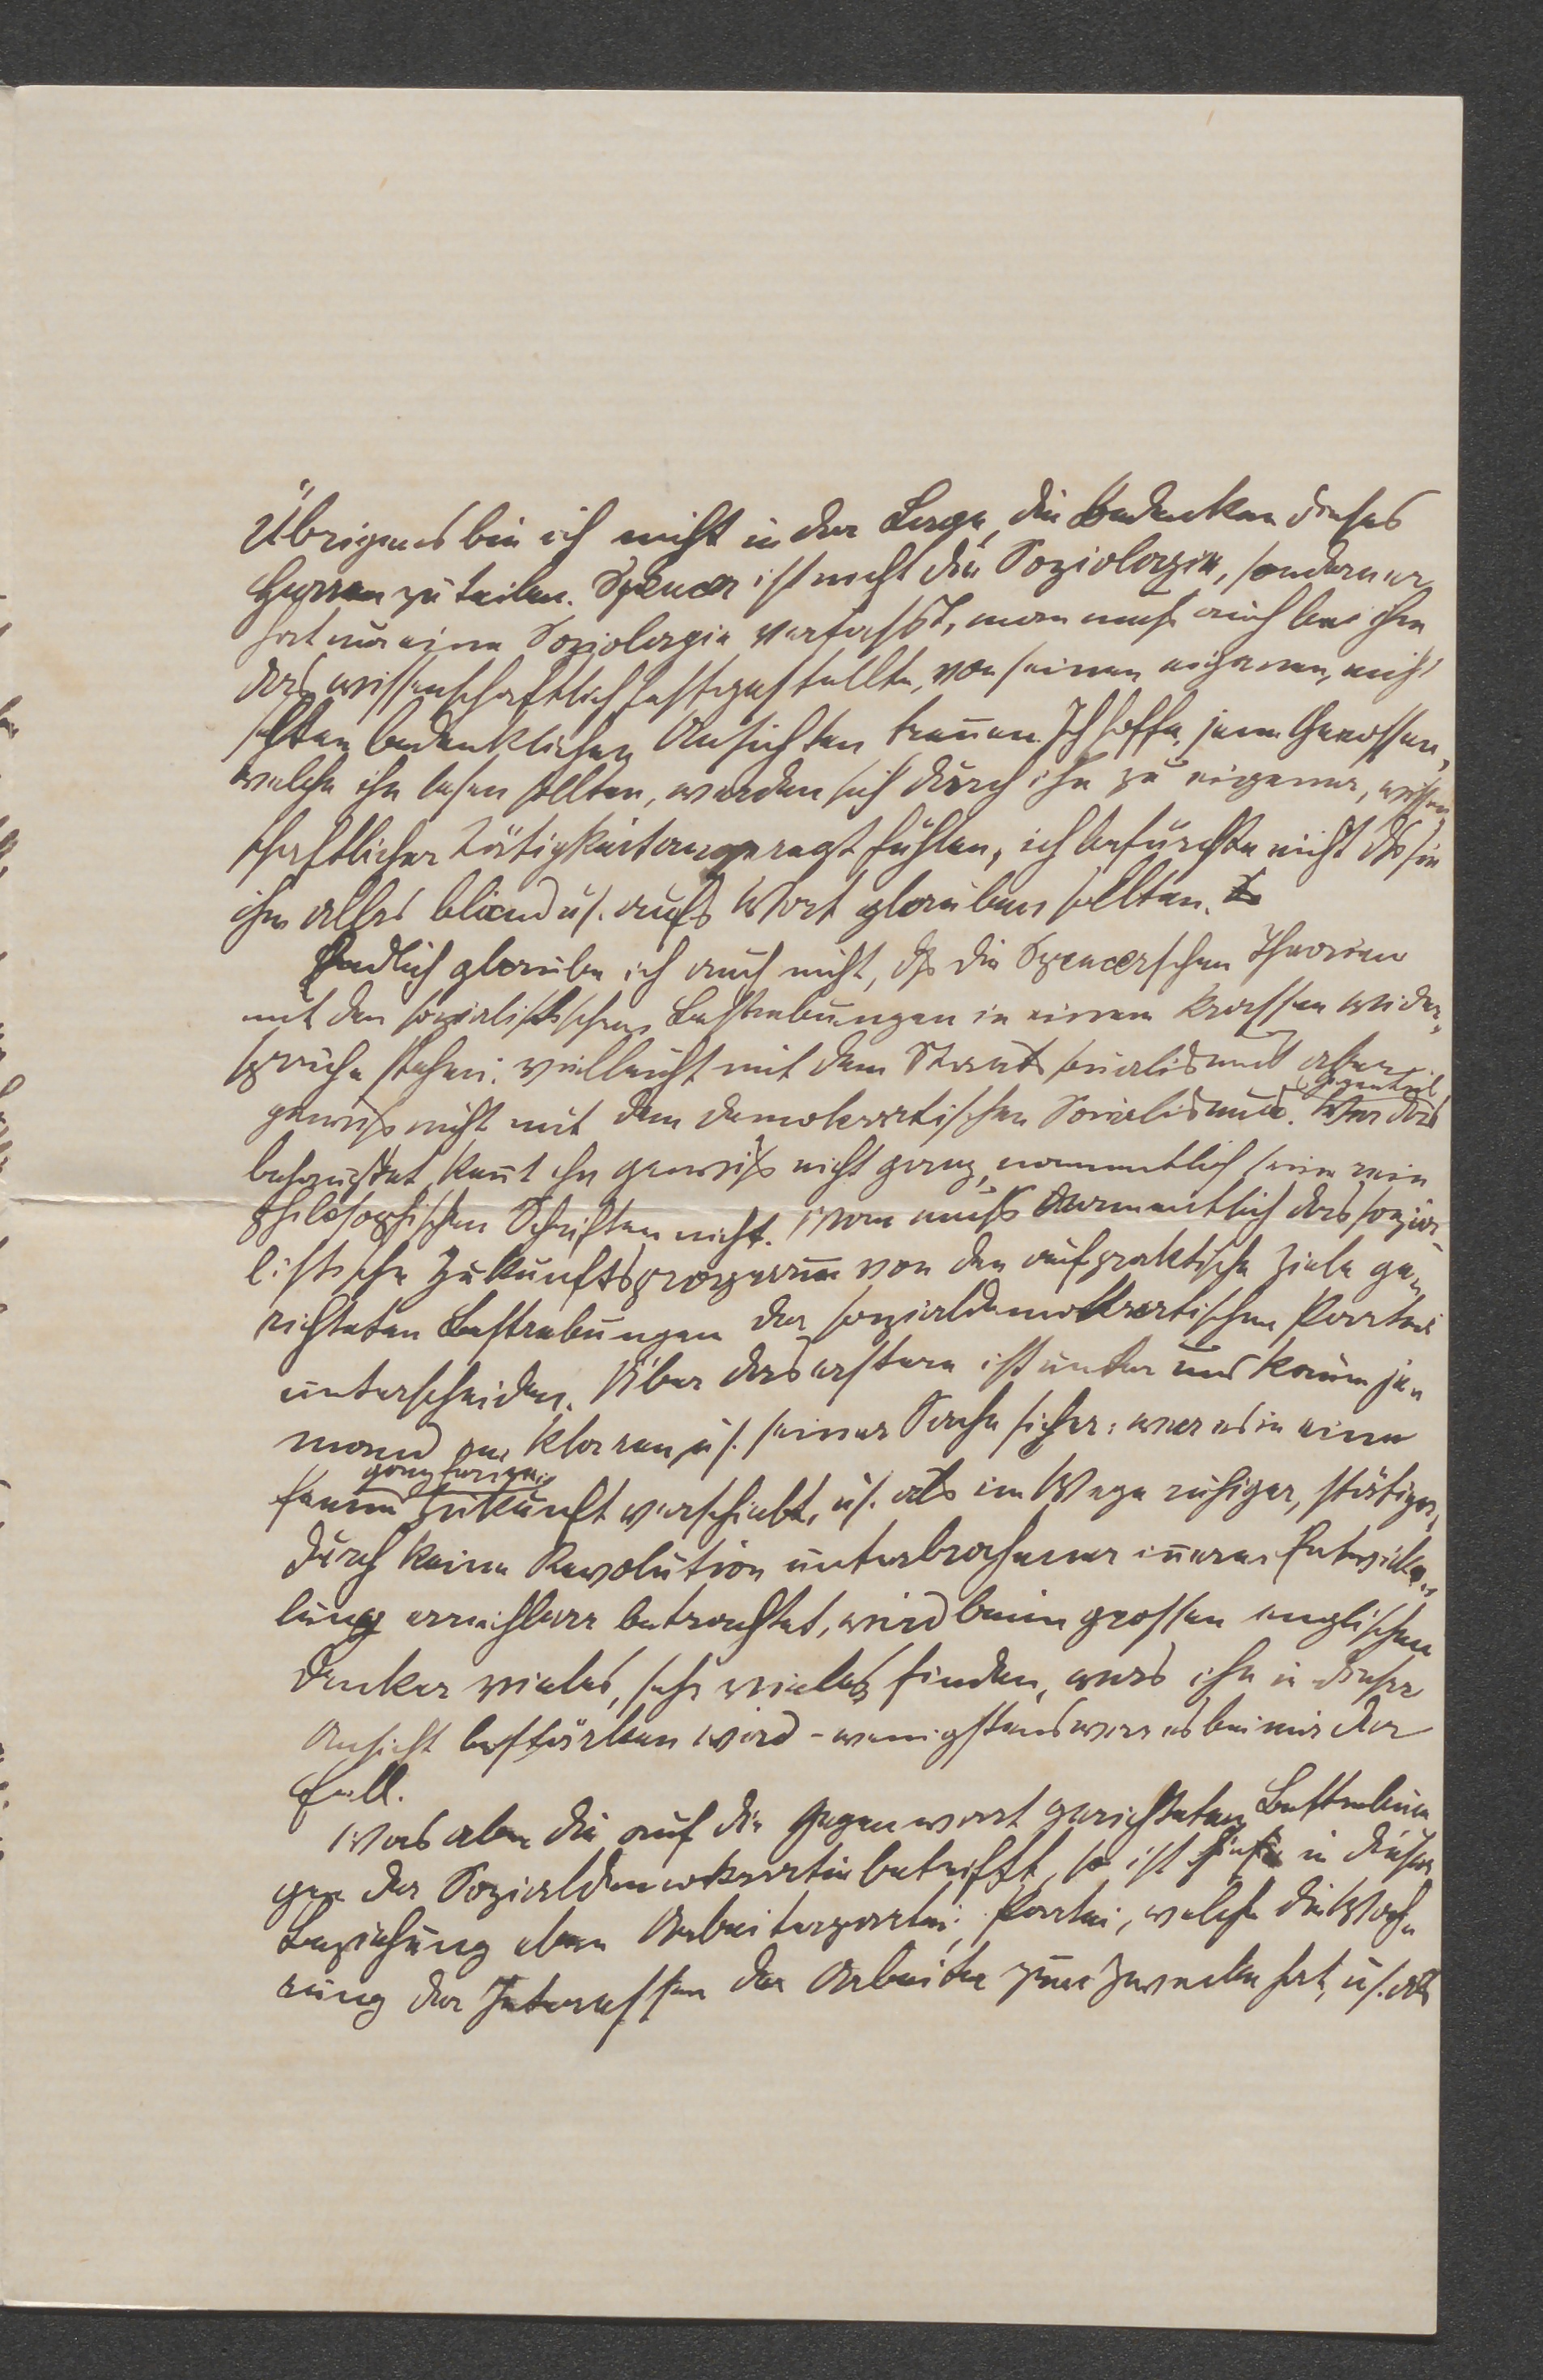 Übrigens bin ich nicht in der Lage, die Bedenken dieses
Herren zu teilen. Spencer ist nicht die Soziologie, sondern er
hat nur eine Soziologie verfasst, man muß auch bei ihm
das wissenschaftlich festgestellte, von seinen eigenen, nicht
selten bedenklichen Ansichten trennen. Ich hoffe, jene Genossen,
welche ihn lesen sollten, werden sich durch ihn zu eigener, wissen-
schaftlicher Tätigkeit angeregt fühlen, ich befürchte nicht dß sie
ihm alles blind u. aufs Wort glauben sollten.
Endlich glaube ich auch nicht, dß die Spencerschen Theorien
mit den sozialistischen Bestrebungen in einem krassen Wider-
spruche stehen; vielleicht mit dem Staatssozialismus aber
gewiß nicht mit dem demokratischen Sozialismus. Wer das Gegenteil
behauptet kennt ihn gewiß nicht ganz, namentlich seine rein
philosophischen Schriften nicht. Man muß namentlich das sozia-
listische Zukunftsprogramm von den auf praktische Ziele ge-
richteten Bestrebungen der sozialdemokratischen Partei
unterscheiden. Über das erstere ist unter uns kaum je-
mand im klaren u. seiner Sache sicher: wer es in eine
ganz
ferne Zukunft verschiebt, u. als im Wege ruhiger, stätiger,
durch keine Revolution unterbrochener innerer Entwicke-
lung erreichbar betrachtet, wird beim grossen englischen
Denker vieles, sehr vieles finden, was ihn in dieser
Ansicht bestärken wird – wenigstens war es bei mir der
Fall.
Was aber die auf die Gegenwart gerichteten Bestrebun
gen der Sozialdemokratie betrifft, so ist sie in dieser
Beziehung eben Arbeiterpartei, Partei, welche die Wah-
rung der Interessen der Arbeiter zum Zwecke hat, u. als